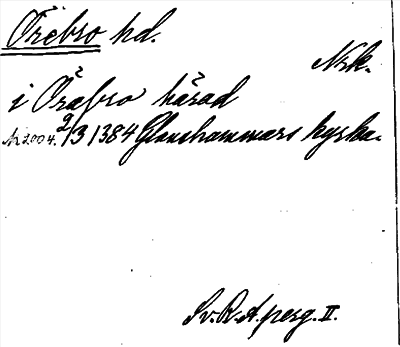 Örebro hd.
Nrk.
i Örabro härad
Nr 2004. 2/3 1384 Glanshammars kyrka.
Sv. R. A. perg. II.